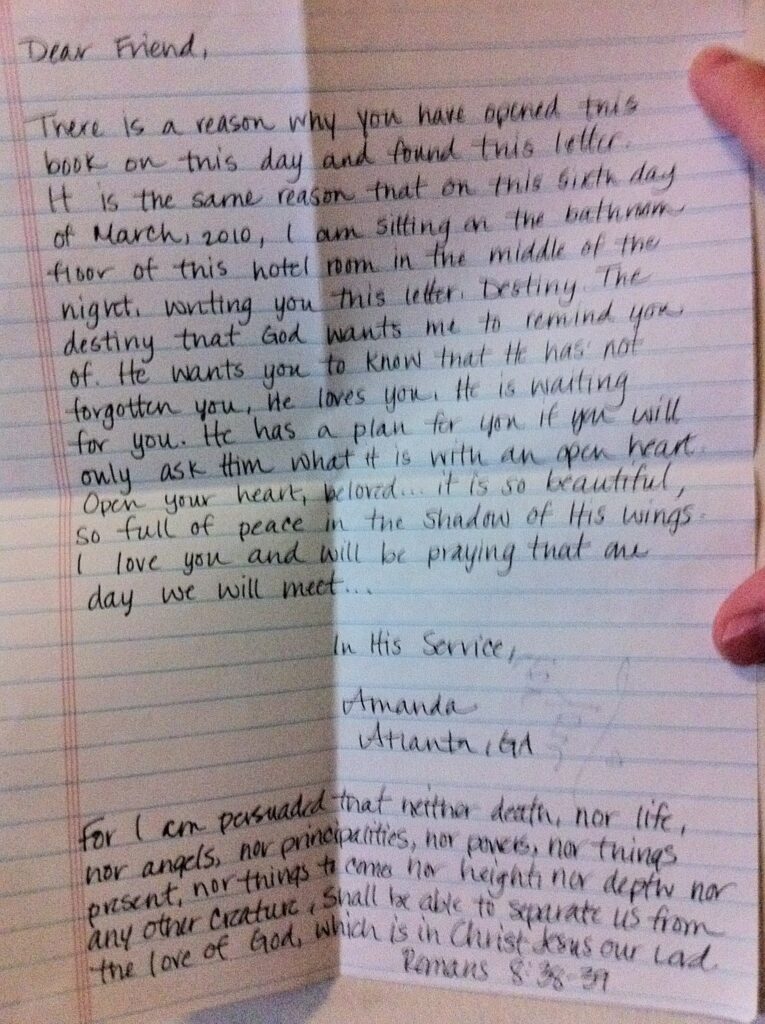 Dear Friend,
There is a reason why you have opened this
book on this day and found this letter.
It is the same reason that on this sixth day
of March, 2010, I am sitting on the bathroom
floor of this hotel room in the middle of the
night, writing you this letter. Destiny. The
destiny that God wants me to remind you
of. He wants you to know that He has not
forgotten you, He loves you. He is waiting
for you. He has a plan for you if you will
only ask Him what it is with an open heart.
Open your heart, beloved... it is so beautiful,
so full of peace in the shadow of His wings.
I love you and will be praying that one
day we will meet...
In His Service,
Amanda
Atlanta, GA
For I am persuaded that neither death, nor life,
nor angels, nor principalities, nor powers, nor things
present, nor things to come, nor height, nor depth, nor
any other creature, shall be able to separate us from
the love of God, which is in Christ Jesus our Lord.
Romans 8:38-39